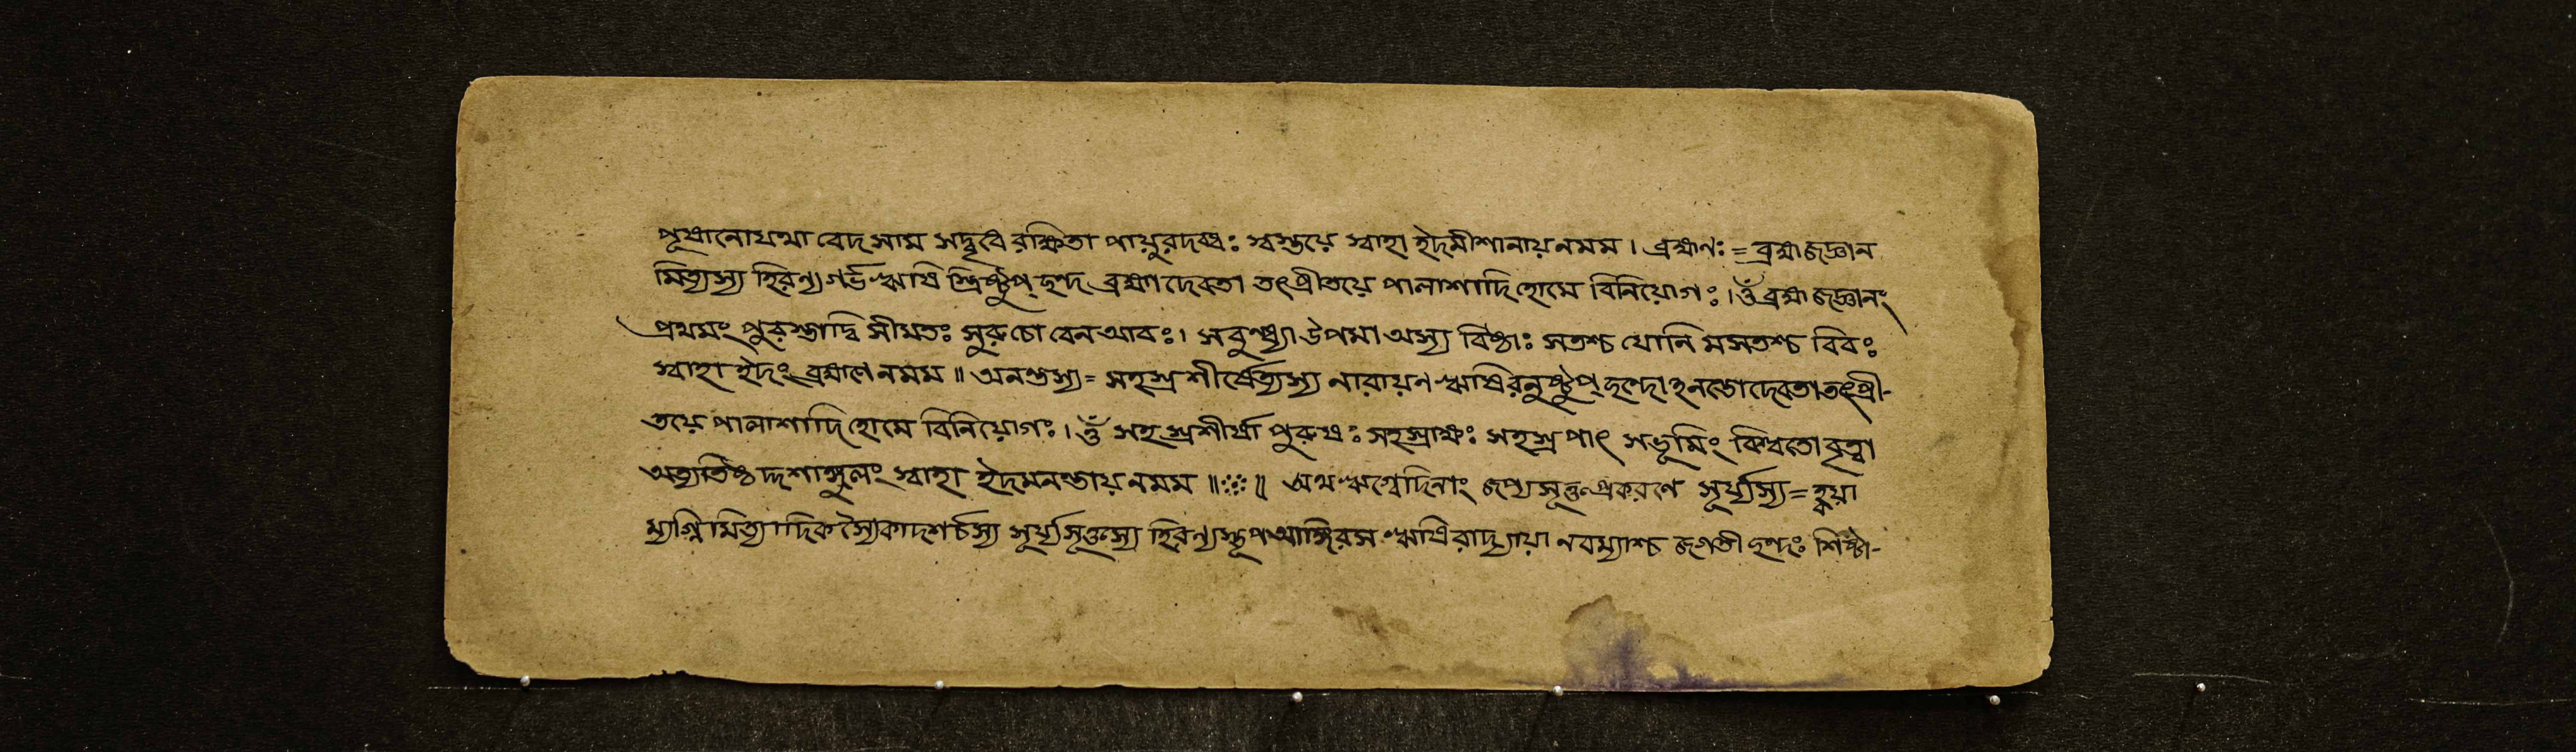 পূষানোযথা বেদ সাম সদ্বৃধে রক্ষিতা পায়ুরদব্ধঃ স্বস্তয়ে স্বাহা ইদমীশানায় নমম । ব্রহ্মণঃ = ব্রহ্মজজ্ঞান
মিত্যস্য হিরণ্যগর্ভ ঋষি স্ত্রিষ্টুপ্ ছন্দ ব্রহ্মা দেবতা তৎপ্রীতয়ে পালাশাদি হোমে বিনিয়োগঃ । ওঁ ব্রহ্ম জজ্ঞানং
প্রথমং পুরস্তাদ্বি সীমতঃ সুরুচো বেন আবঃ । সবুধ্ন্যা উপমা অস্য বিষ্ঠাঃ সতশ্চ যোনি মসতশ্চ বিবঃ
স্বাহা ইদং ব্রহ্মণে নমম ॥ অনন্তস্য = সহস্রশীর্ষেত্যস্য নারায়ণ ঋষিরনুষ্টুপ্ ছন্দোঽনন্তো দেবতা তৎপ্রী-
তয়ে পালাশাদি হোমে বিনিয়োগঃ । ওঁ সহস্রশীর্ষা পুরুষঃ সহস্রাক্ষঃ সহস্রপাৎ সভূমিং বিশ্বতো বৃত্বা
অত্যতিষ্ঠদ্দশাঙ্গুলং স্বাহা ইদমনন্তায় নমম ॥ ॥ অথ ঋগ্বেদিনাং জপ্যসূক্তপ্রকরণে সূর্য্যস্য = হ্বয়া
ম্যগ্নিমিত্যাদিকস্যৈকাদশর্চস্য সূর্য্যসূক্তস্য হিরণ্যস্তূপ আঙ্গিরস ঋষিরাদ্যায়া নবম্যাশ্চ জগতী ছন্দঃ শিষ্টা-